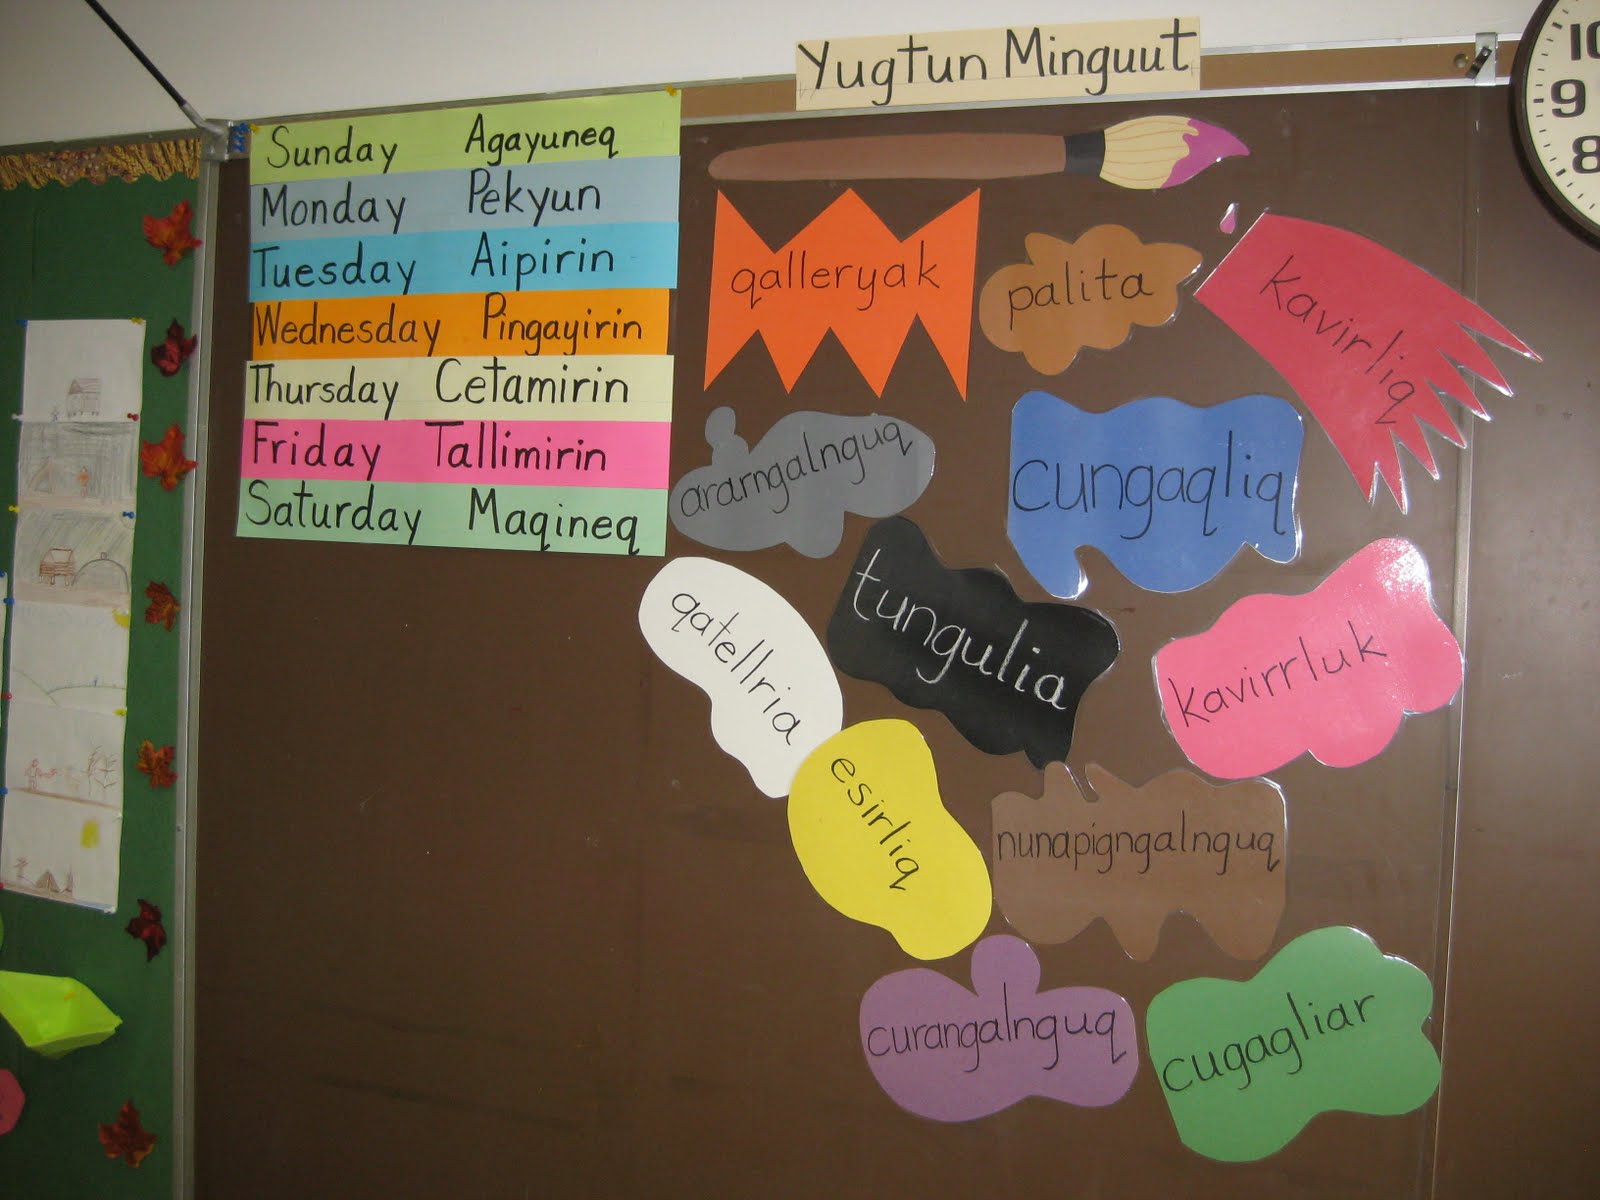 Yugtun Minguut
Sunday Agayuneq
Monday Pekyun
Tuesday Aipirin
Wednesday Pingayirin
Thursday Cetamirin
Friday Tallimirin
Saturday Maqineq
qalleryak
palita
kavirliq
ararngalnguq
cungaqliq
qatellria
tungulia
kavirrluk
esirliq
nunapigngalnguq
curangalnguq
cugagliar
10
9
8